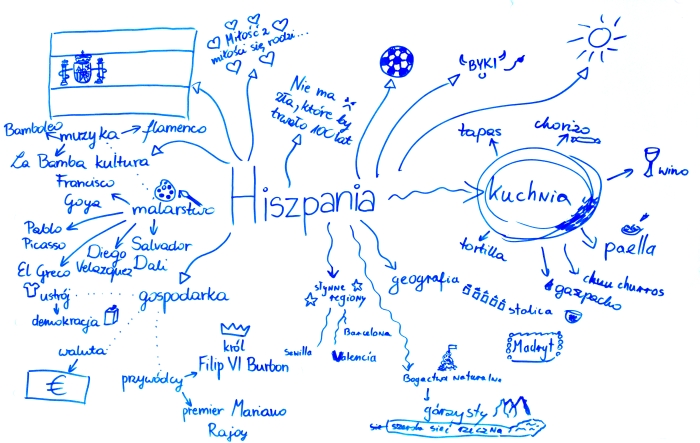 Miłość z
miłości się rodzi...
Nie ma
zła, które by
trwało 100 lat
"BYKI"
Bamboleo
muzyka
flamenco
La Bamba
kultura
Francisco
Goya
malarstwo
Pablo
Picasso
El Greco
Diego
Velazquez
Salvador
Dali
Hiszpania
tapas
chorizo
wino
kuchnia
paella
tortilla
gazpacho
churros
ustrój
demokracja
gospodarka
waluta
€
przywódcy
król
Filip VI Burbon
premier Mariano
Rajoy
słynne
regiony
Sewilla
Barcelona
Valencia
geografia
stolica
Madryt
Bogactwa naturalne
górzysty
sieć rzeczna